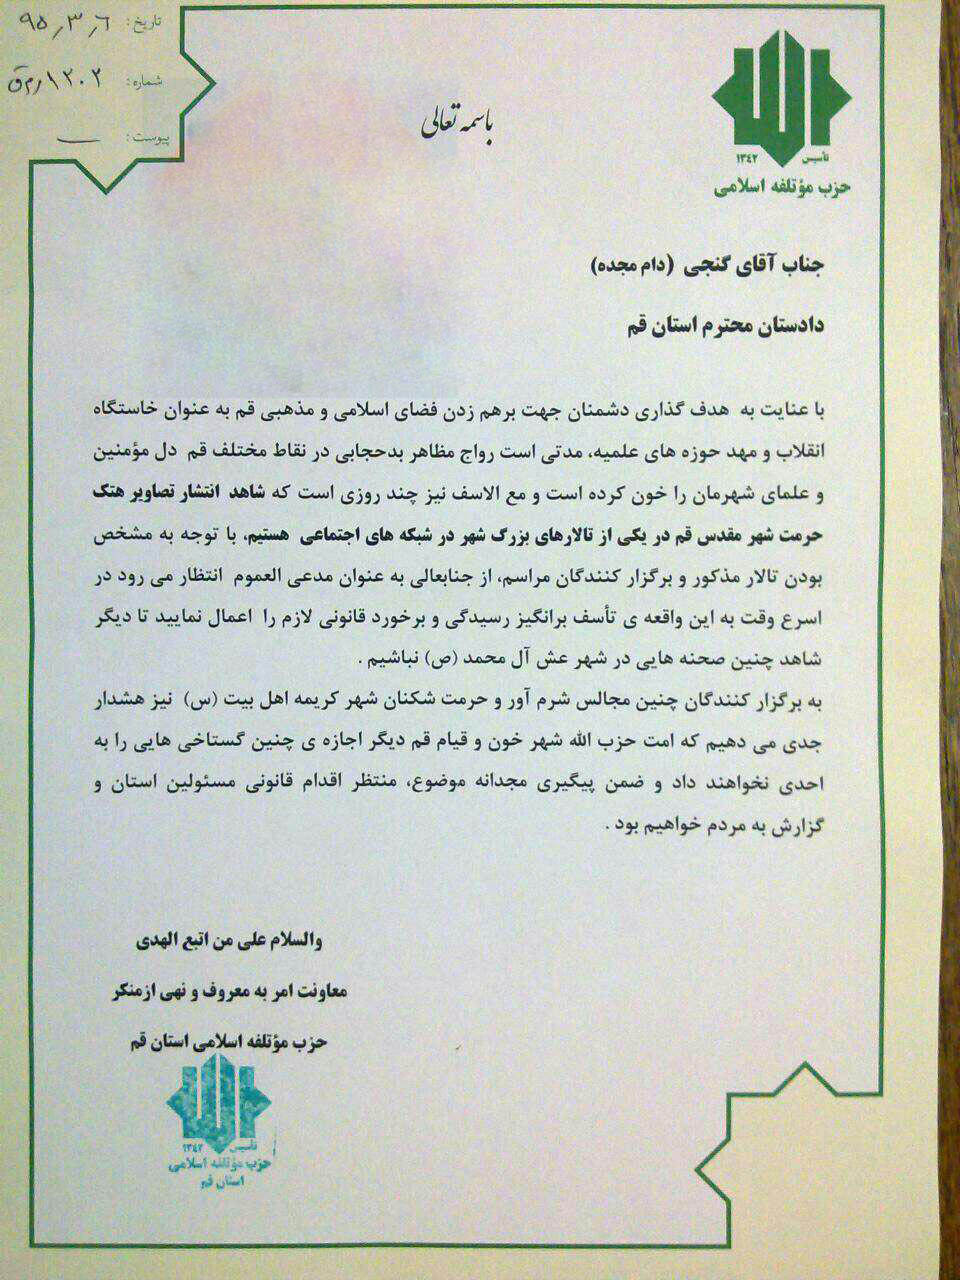 تاریخ: ۹۵٫۳٫۶
شماره: ۱۲۰۲٫م ق
پیوست: ـــ
باسمه تعالی
تأسیس ۱۳٤۲
حزب مؤتلفه اسلامی
جناب آقای گنجی (دام مجده)
دادستان محترم استان قم
با عنایت به هدف گذاری دشمنان جهت برهم زدن فضای اسلامی و مذهبی قم به عنوان خاستگاه
انقلاب و مهد حوزه های علمیه، مدتی است رواج مظاهر بدحجابی در نقاط مختلف قم دل مؤمنین
و علمای شهرمان را خون کرده است و مع الاسف نیز چند روزی است که شاهد انتشار تصاویر هتک
حرمت شهر مقدس قم در یکی از تالارهای بزرگ شهر در شبکه های اجتماعی هستیم، با توجه به مشخص
بودن تالار مذکور و برگزار کنندگان مراسم، از جنابعالی به عنوان مدعی العموم انتظار می رود در
اسرع وقت به این واقعه ی تأسف برانگیز رسیدگی و برخورد قانونی لازم را اعمال نمایید تا دیگر
شاهد چنین صحنه هایی در شهر عش آل محمد (ص) نباشیم .
به برگزار کنندگان چنین مجالس شرم آور و حرمت شکنان شهر کریمه اهل بیت (س) نیز هشدار
جدی می دهیم که امت حزب الله شهر خون و قیام قم دیگر اجازه ی چنین گستاخی هایی را به
احدی نخواهند داد و ضمن پیگیری مجدانه موضوع، منتظر اقدام قانونی مسئولین استان و
گزارش به مردم خواهیم بود .
والسلام علی من اتبع الهدی
معاونت امر به معروف و نهی ازمنکر
حزب مؤتلفه اسلامی استان قم
تأسیس ۱۳٤۲
حزب مؤتلفه اسلامی
استان قم